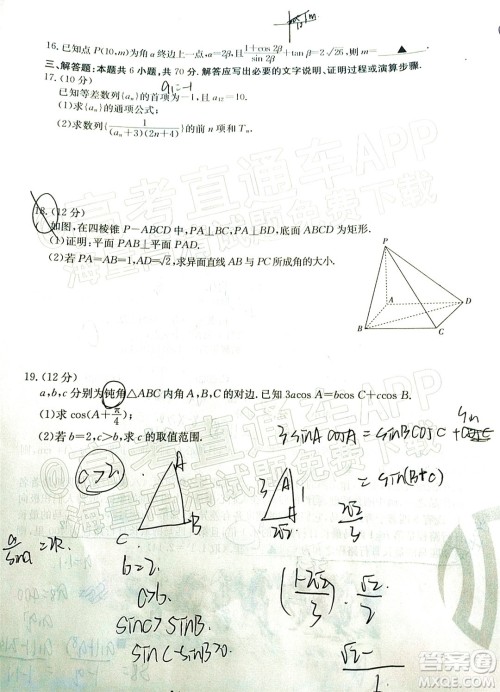 16.已知点P(10,m)为角α终边上一点,α=2β,且(1+cos2β)/sin2β+tanβ=2√26,则m=▲.
三、解答题:本题共6小题,共70分.解答应写出必要的文字说明、证明过程或演算步骤.
17.(10分)
a₁=-1
已知等差数列{aₙ}的首项为-1,且a₁₂=10.
(1)求{aₙ}的通项公式;
(2)求数列{1/((aₙ+3)(2n+4))}的前n项和Tₙ.
高考直通车APP
海量高清试题免费下载
18.(12分)
如图,在四棱锥P-ABCD中,PA⊥BC,PA⊥BD,底面ABCD为矩形.
(1)证明:平面PAB⊥平面PAD.
(2)若PA=AB=2,AD=√2,求异面直线AB与PC所成角的大小.
P
A
D
B
C
19.(12分)
a,b,c分别为钝角△ABC内角A,B,C的对边.已知3acosA=bcosC+ccosB.
(1)求cos(A+π/4);
(2)若b=2,c>b,求c的取值范围.
3sinAcosA=sinBcosC+
=sin(B+C)
c>2
A
C
B
3
A
1
2√2
2√2/3
a/sina=2R
b=2
c>b
sinC>sinB
sinC-sinB>0
(1-2√2)/3 · √2/2
高考直通车APP
海量高清试题免费下载
答案圈
MXQE.COM